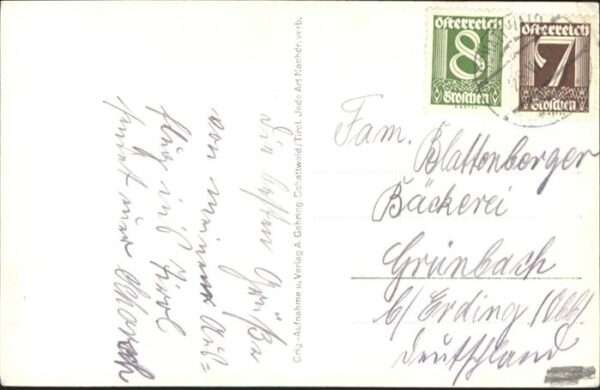 Die besten Grüße
von meinem Aus=
flug ins Tirol
sendet euer
Orig.-Aufnahme u. Verlag A. Gehring, Schattwald/Tirol. Jede Art Nachdr. verb.
Österreich
8
Groschen
Österreich
7
Groschen
Fam.
Blattenberger
Bäckerei
Grünbach
b/Erding /Obb.
Deutschland